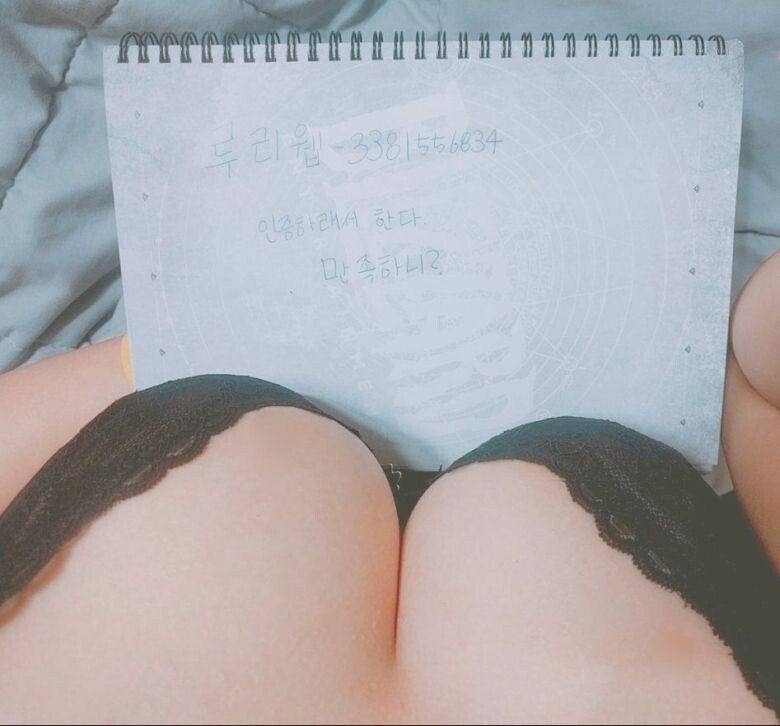 루리웹-3381556834
인증하래서 한다.
만족하니?